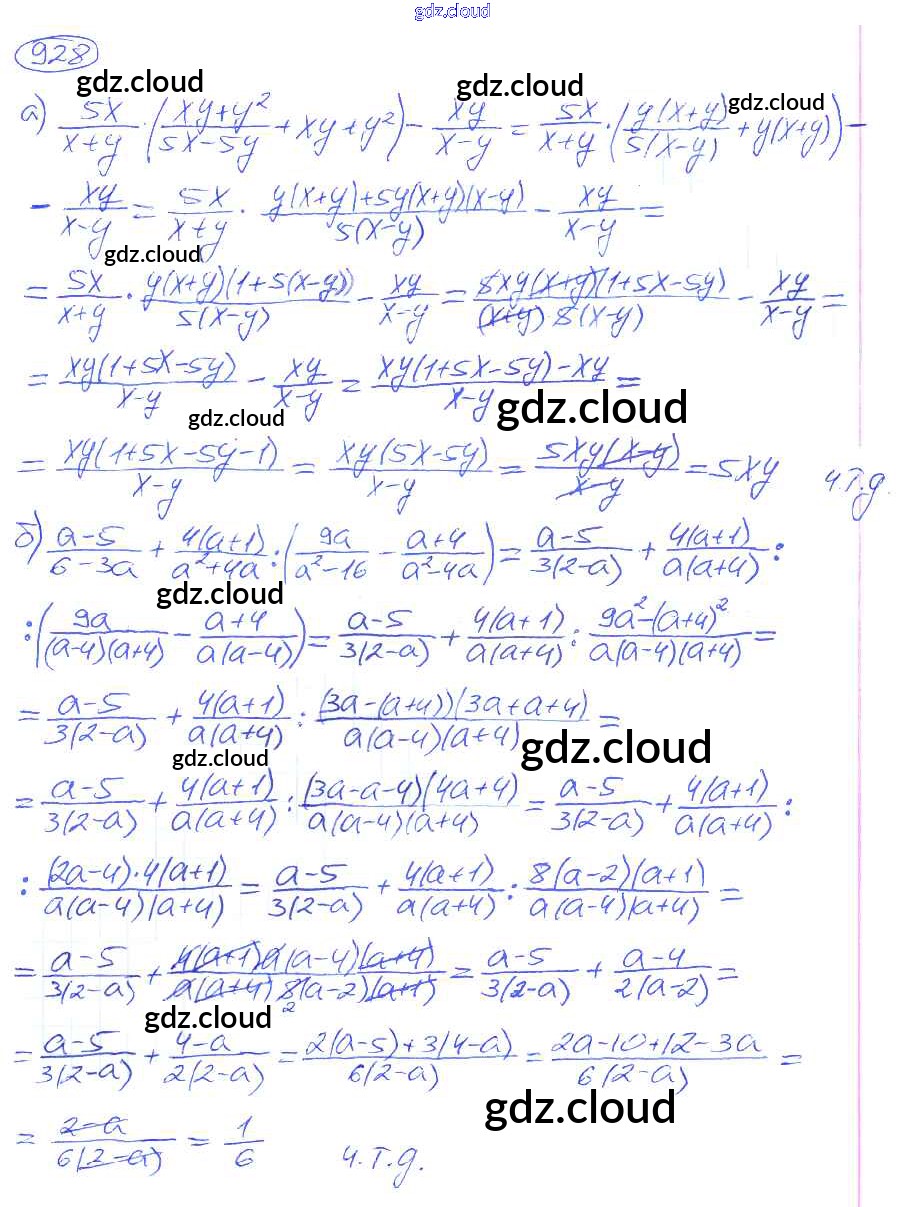 gdz.cloud
928
gdz.cloud gdz.cloud gdz.cloud
а) 5x/(x+y) · ((xy+y²)/(5x-5y) + xy+y²) - xy/(x-y) = 5x/(x+y) · (y(x+y)/5(x-y) + y(x+y)) -
- xy/(x-y) = 5x/(x+y) · (y(x+y)+5y(x+y)(x-y))/5(x-y) - xy/(x-y) =
gdz.cloud
= 5x/(x+y) · y(x+y)(1+5(x-y))/5(x-y) - xy/(x-y) = 5xy(x+y)(1+5x-5y)/(x+y)·5(x-y) - xy/(x-y) =
= xy(1+5x-5y)/(x-y) - xy/(x-y) = (xy(1+5x-5y)-xy)/(x-y) =
gdz.cloud gdz.cloud
= xy(1+5x-5y-1)/(x-y) = xy(5x-5y)/(x-y) = 5xy(x-y)/(x-y) = 5xy ч.т.д.
б) (a-5)/(6-3a) + 4(a+1)/(a²+4a) : (9a/(a²-16) - (a+4)/(a²-4a)) = (a-5)/3(2-a) + 4(a+1)/a(a+4) :
gdz.cloud
: (9a/(a-4)(a+4) - (a+4)/a(a-4)) = (a-5)/3(2-a) + 4(a+1)/a(a+4) : (9a²-(a+4)²)/a(a-4)(a+4) =
= (a-5)/3(2-a) + 4(a+1)/a(a+4) : (3a-(a+4))(3a+a+4)/a(a-4)(a+4) =
gdz.cloud gdz.cloud
= (a-5)/3(2-a) + 4(a+1)/a(a+4) : (3a-a-4)(4a+4)/a(a-4)(a+4) = (a-5)/3(2-a) + 4(a+1)/a(a+4) :
: (2a-4)·4(a+1)/a(a-4)(a+4) = (a-5)/3(2-a) + 4(a+1)/a(a+4) : 8(a-2)(a+1)/a(a-4)(a+4) =
= (a-5)/3(2-a) + 4(a+1)a(a-4)(a+4)/a(a+4)8(a-2)(a+1) = (a-5)/3(2-a) + (a-4)/2(a-2) =
2
gdz.cloud
= (a-5)/3(2-a) + (4-a)/2(2-a) = (2(a-5)+3(4-a))/6(2-a) = (2a-10+12-3a)/6(2-a) =
gdz.cloud
= (2-a)/6(2-a) = 1/6 ч.т.д.